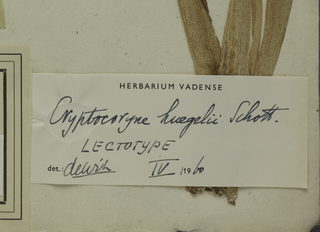 HERBARIUM VADENSE
Cryptocoryne huegelii Schott.
LECTOTYPE
det.: deWit IV /1960